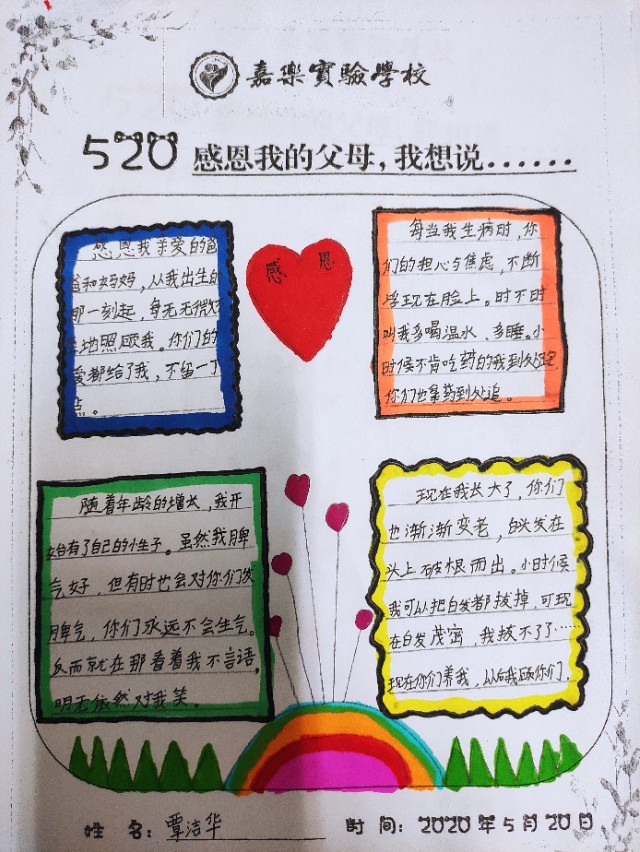 嘉樂實驗學校
520 感恩我的父母，我想说......
感恩我亲爱的爸
爸和妈妈，从我出生的
那一刻起，每无无微不
地照顾我。你们的
爱都给了我，不留一丁
点。
感恩
每当我生病时，你
们的担心与焦虑，不断
浮现在脸上。时不时
叫我多喝温水、多睡。小
时候不肯吃药的我到处跑
你们也拿药到处追。
随着年龄的增长，我开
始有了自己的小性子。虽然我脾
气好，但有时也会对你们发
脾气，你们永远不会生气。
反而就在那看着我不言语，
明天依然对我笑。
现在我长大了，你们
也渐渐变老，白头发在
头上破根而出。小时候
我可以把白发都拔掉，可现
在白发茂密，我拔不了……
现在你们养我，以后我顾你们。
姓 名：覃洁华 时 间：2020年5月20日